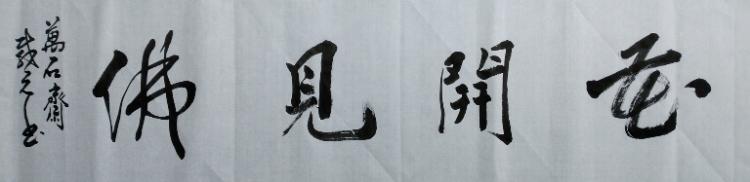 花開見佛
萬石齋
戴之書